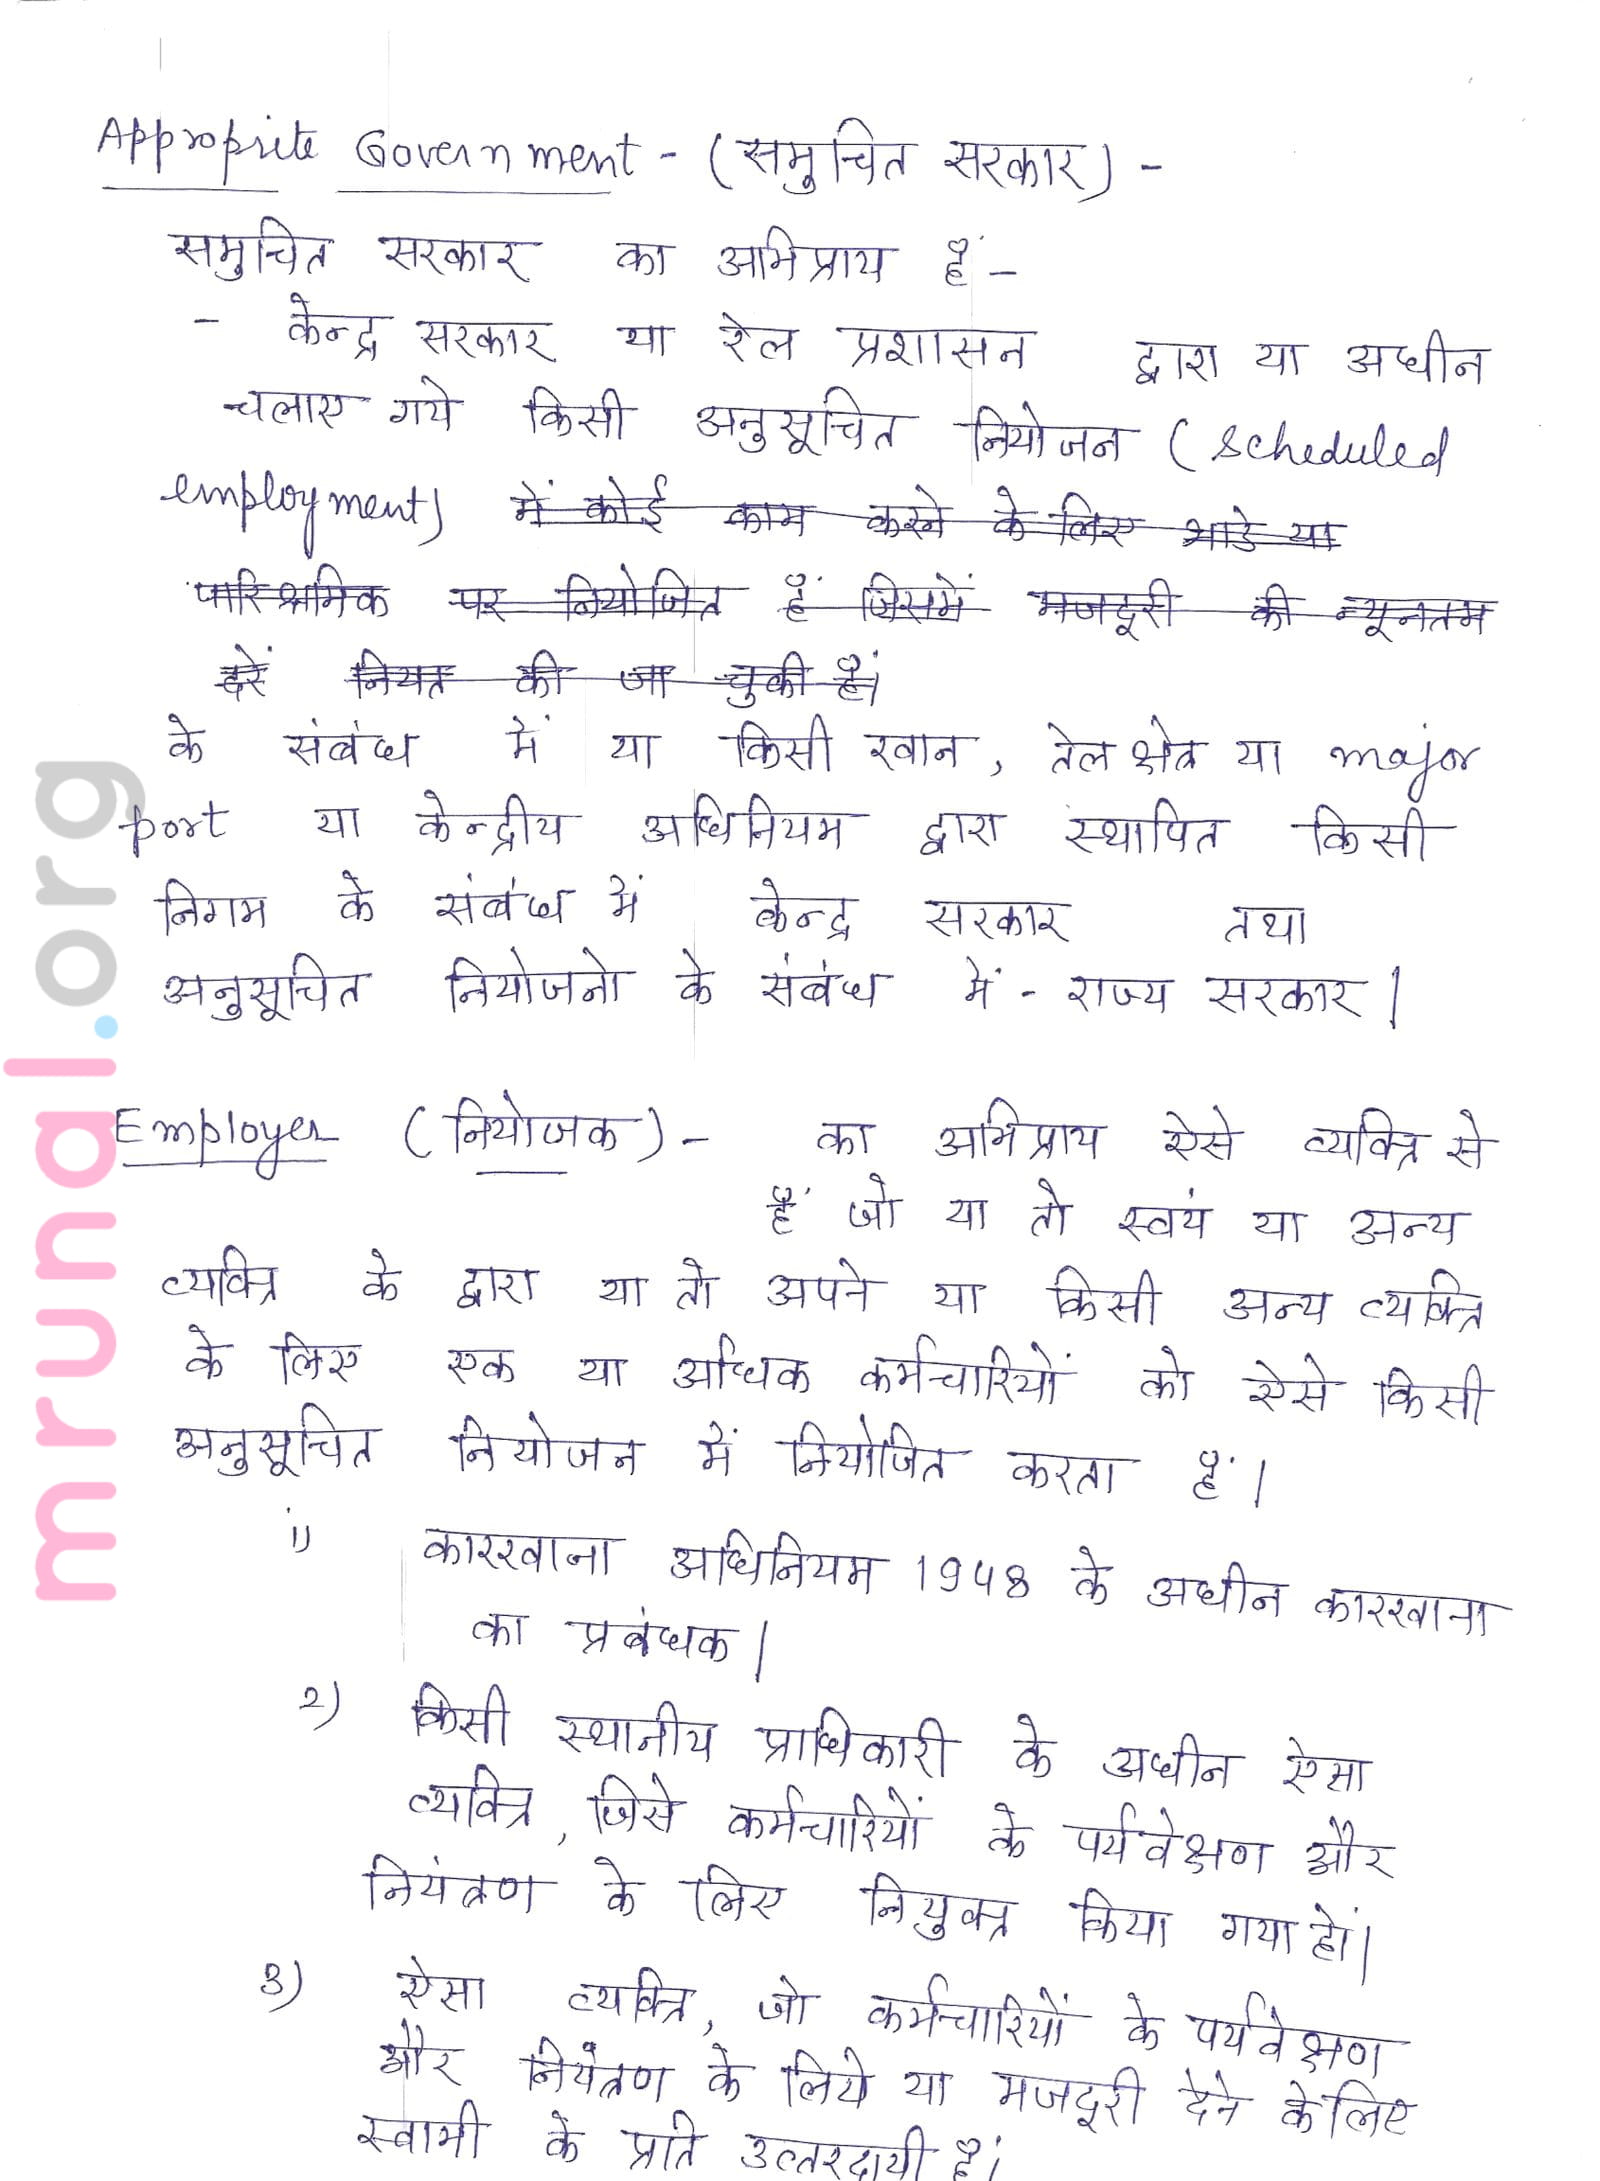 Approprite Government - (समुचित सरकार) -
समुचित सरकार का अभिप्राय हैं -
- केन्द्र सरकार या रेल प्रशासन द्वारा या अधीन
चलाए गये किसी अनुसूचित नियोजन (scheduled
employment) में कोई काम करने के लिए भाडे या
पारिश्रमिक पर नियोजित हैं जिसमें मजदूरी की न्यूनतम
दरें नियत की जा चुकी हैं।
के संबंध में या किसी खान, तेल क्षेत्र या major
port या केन्द्रीय अधिनियम द्वारा स्थापित किसी
निगम के संबंध में केन्द्र सरकार तथा
अनुसूचित नियोजनो के संबंध में - राज्य सरकार |
Employer (नियोजक) - का अभिप्राय ऐसे व्यक्ति से
हैं जो या तो स्वयं या अन्य
व्यक्ति के द्वारा या तो अपने या किसी अन्य व्यक्ति
के लिए एक या अधिक कर्मचारियों को ऐसे किसी
अनुसूचित नियोजन में नियोजित करता हैं |
1) कारखाना अधिनियम 1948 के अधीन कारखाना
का प्रबंधक |
2) किसी स्थानीय प्राधिकारी के अधीन ऐसा
व्यक्ति, जिसे कर्मचारियों के पर्यवेक्षण और
नियंत्रण के लिए नियुक्त किया गया हों|
3) ऐसा व्यक्ति, जो कर्मचारियों के पर्यवेक्षण
और नियंत्रण के लिये या मजदूरी देने के लिए
स्वामी के प्रति उत्तरदायी हैं।
mrunal.org